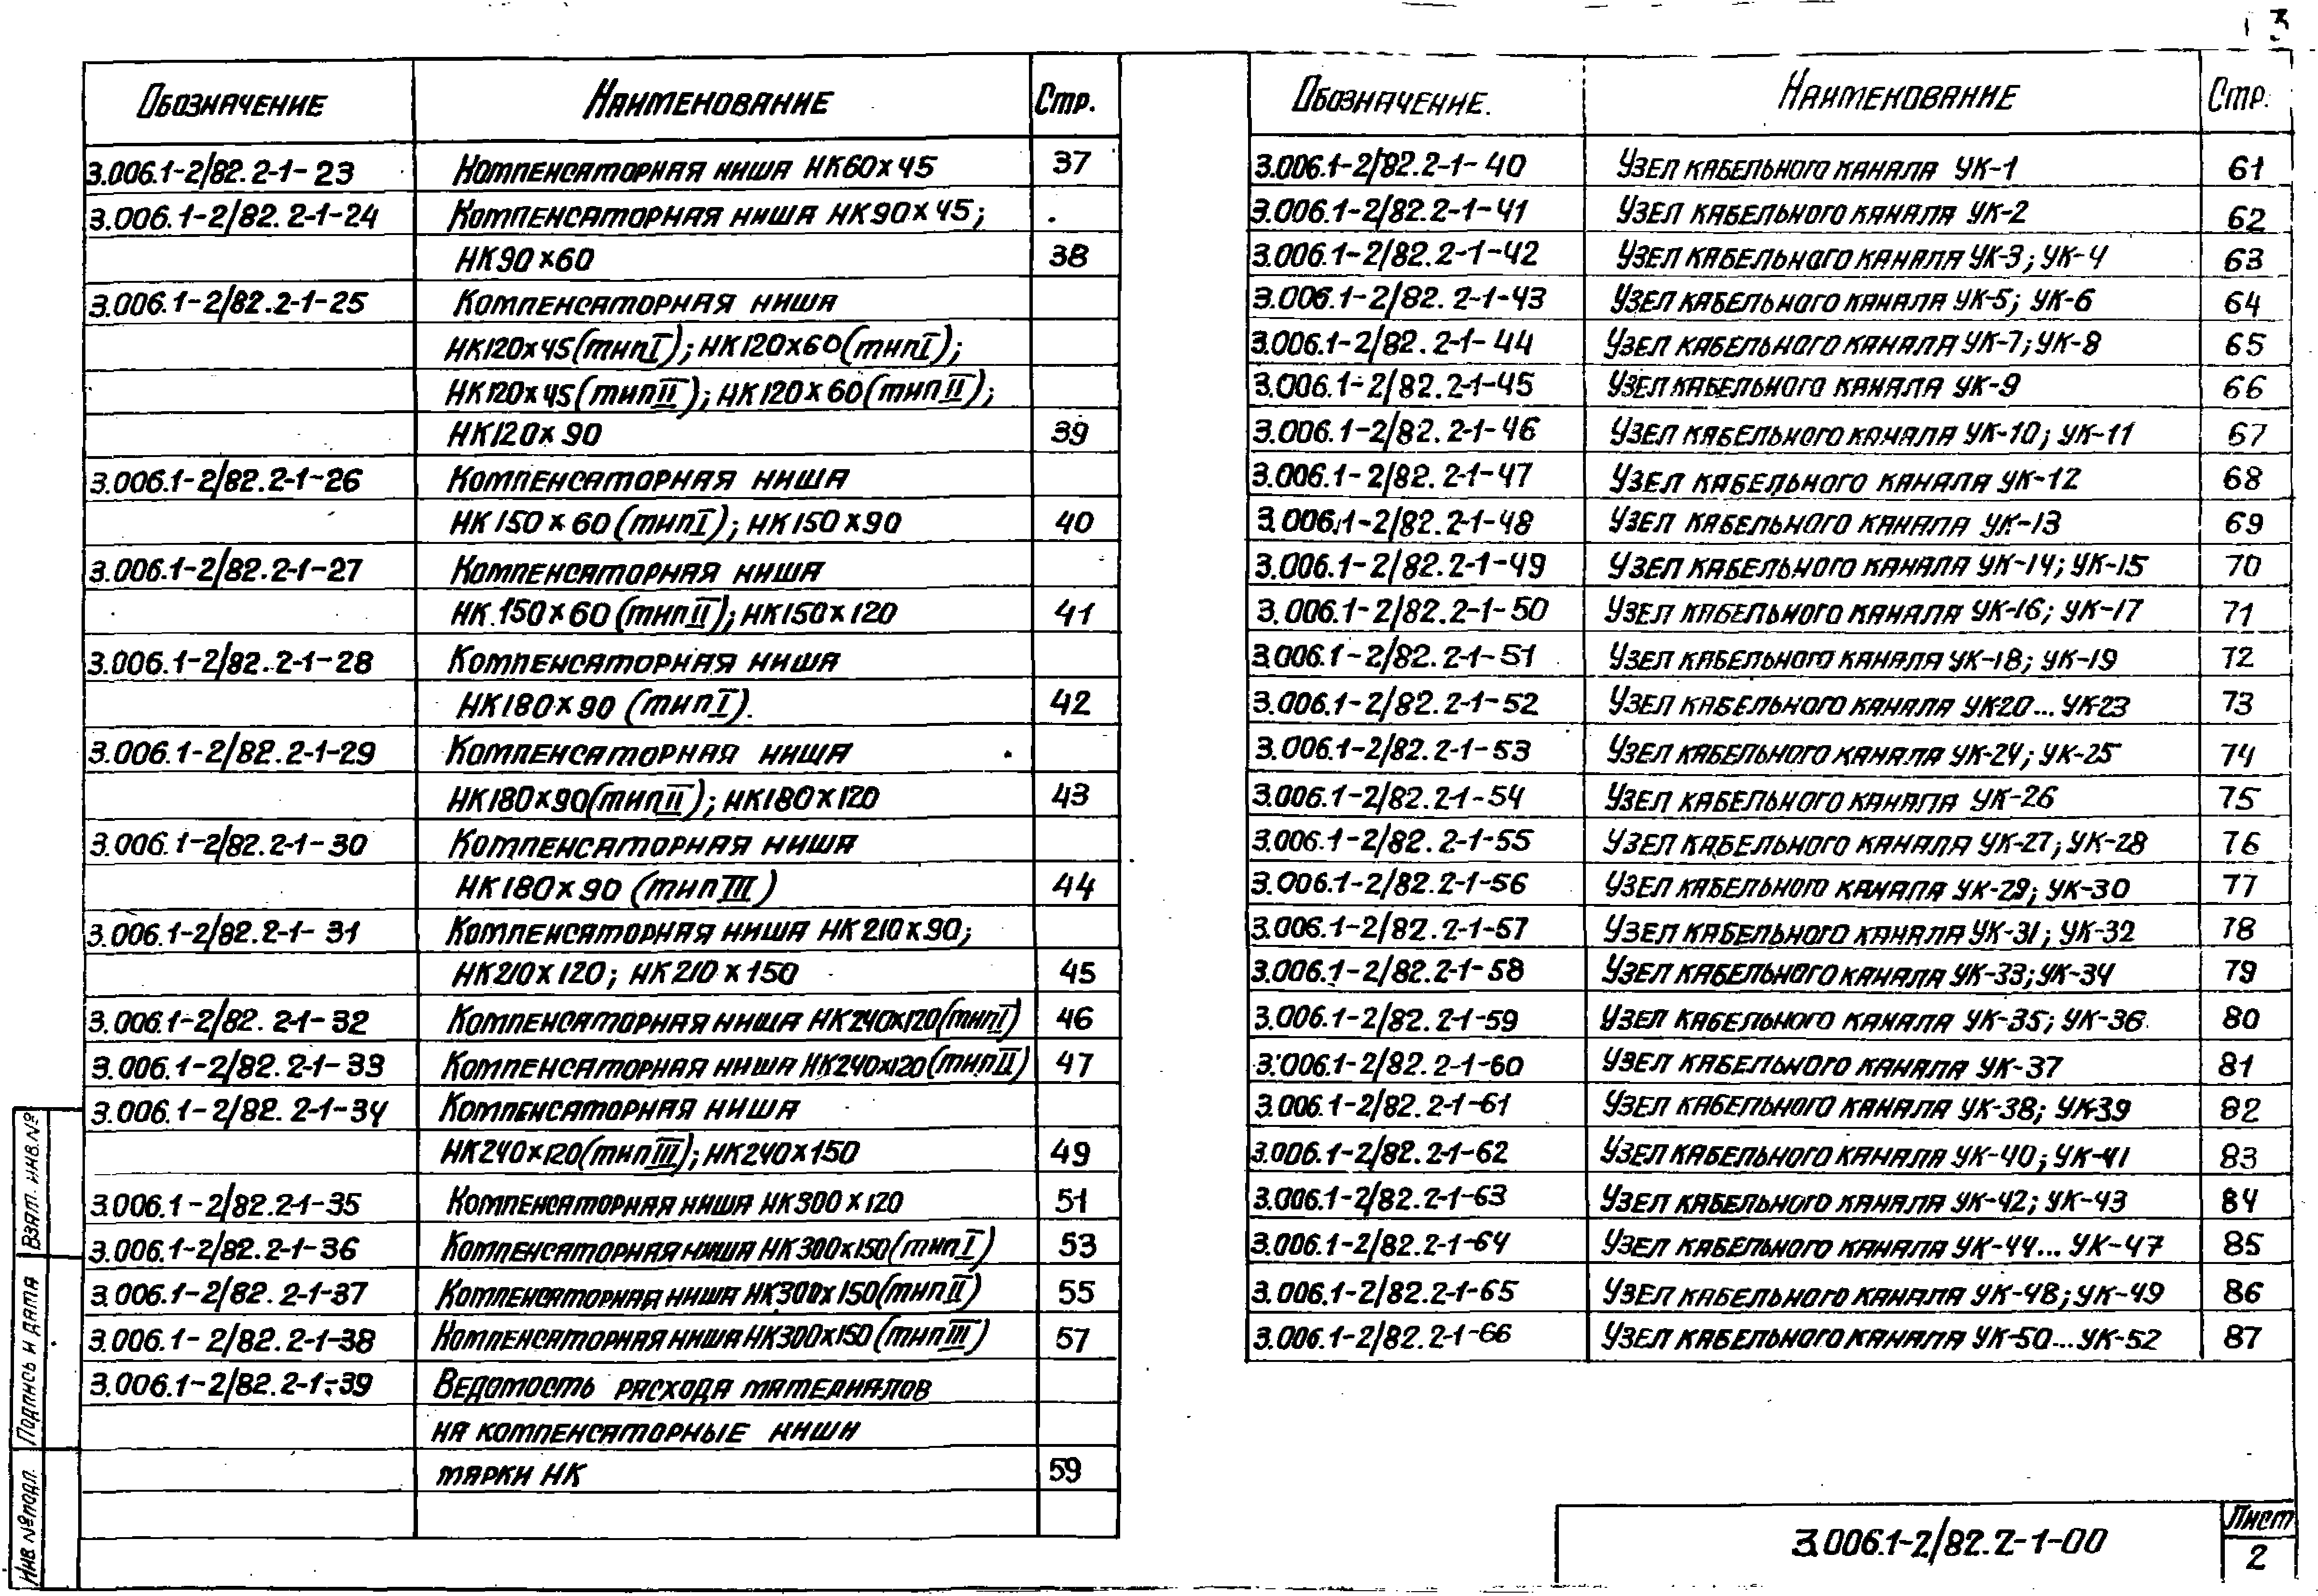 3
Обозначение Наименование Стр.
3.006.1-2/82.2-1-23 Компенсаторная ниша НК60х45 37
3.006.1-2/82.2-1-24 Компенсаторная ниша НК90х45;
НК90х60 38
3.006.1-2/82.2-1-25 Компенсаторная ниша
НК120х45(тип I); НК120х60(тип I);
НК120х45(тип II); НК120х60(тип II);
НК120х90 39
3.006.1-2/82.2-1-26 Компенсаторная ниша
НК150х60(тип I); НК150х90 40
3.006.1-2/82.2-1-27 Компенсаторная ниша
НК.150х60(тип II); НК150х120 41
3.006.1-2/82.2-1-28 Компенсаторная ниша
НК180х90 (тип I). 42
3.006.1-2/82.2-1-29 Компенсаторная ниша
НК180х90(тип II); НК180х120 43
3.006.1-2/82.2-1-30 Компенсаторная ниша
НК180х90 (тип III) 44
3.006.1-2/82.2-1-31 Компенсаторная ниша НК210х90;
НК210х120; НК210х150 45
3.006.1-2/82.2-1-32 Компенсаторная ниша НК240х120(тип I) 46
3.006.1-2/82.2-1-33 Компенсаторная ниша НК240х120(тип II) 47
3.006.1-2/82.2-1-34 Компенсаторная ниша
НК240х120(тип III); НК240х150 49
3.006.1-2/82.2-1-35 Компенсаторная ниша НК300х120 51
3.006.1-2/82.2-1-36 Компенсаторная ниша НК300х150(тип I) 53
3.006.1-2/82.2-1-37 Компенсаторная ниша НК300х150(тип II) 55
3.006.1-2/82.2-1-38 Компенсаторная ниша НК300х150(тип III) 57
3.006.1-2/82.2-1-39 Ведомость расхода материалов
на компенсаторные ниши
марки НК 59
Обозначение. Наименование Стр.
3.006.1-2/82.2-1-40 Узел кабельного канала УК-1 61
3.006.1-2/82.2-1-41 Узел кабельного канала УК-2 62
3.006.1-2/82.2-1-42 Узел кабельного канала УК-3; УК-4 63
3.006.1-2/82.2-1-43 Узел кабельного канала УК-5; УК-6 64
3.006.1-2/82.2-1-44 Узел кабельного канала УК-7; УК-8 65
3.006.1-2/82.2-1-45 Узел кабельного канала УК-9 66
3.006.1-2/82.2-1-46 Узел кабельного канала УК-10; УК-11 67
3.006.1-2/82.2-1-47 Узел кабельного канала УК-12 68
3.006.1-2/82.2-1-48 Узел кабельного канала УК-13 69
3.006.1-2/82.2-1-49 Узел кабельного канала УК-14; УК-15 70
3.006.1-2/82.2-1-50 Узел кабельного канала УК-16; УК-17 71
3.006.1-2/82.2-1-51 Узел кабельного канала УК-18; УК-19 72
3.006.1-2/82.2-1-52 Узел кабельного канала УК20... УК23 73
3.006.1-2/82.2-1-53 Узел кабельного канала УК-24; УК-25 74
3.006.1-2/82.2-1-54 Узел кабельного канала УК-26 75
3.006.1-2/82.2-1-55 Узел кабельного канала УК-27; УК-28 76
3.006.1-2/82.2-1-56 Узел кабельного канала УК-29; УК-30 77
3.006.1-2/82.2-1-57 Узел кабельного канала УК-31; УК-32 78
3.006.1-2/82.2-1-58 Узел кабельного канала УК-33; УК-34 79
3.006.1-2/82.2-1-59 Узел кабельного канала УК-35; УК-36 80
3.006.1-2/82.2-1-60 Узел кабельного канала УК-37 81
3.006.1-2/82.2-1-61 Узел кабельного канала УК-38; УК39 82
3.006.1-2/82.2-1-62 Узел кабельного канала УК-40; УК-41 83
3.006.1-2/82.2-1-63 Узел кабельного канала УК-42; УК-43 84
3.006.1-2/82.2-1-64 Узел кабельного канала УК-44... УК-47 85
3.006.1-2/82.2-1-65 Узел кабельного канала УК-48; УК-49 86
3.006.1-2/82.2-1-66 Узел кабельного канала УК-50...УК-52 87
Взят. инв.№
Подпись и дата
Инв №подл.
3.006.1-2/82.2-1-00
Лист
2